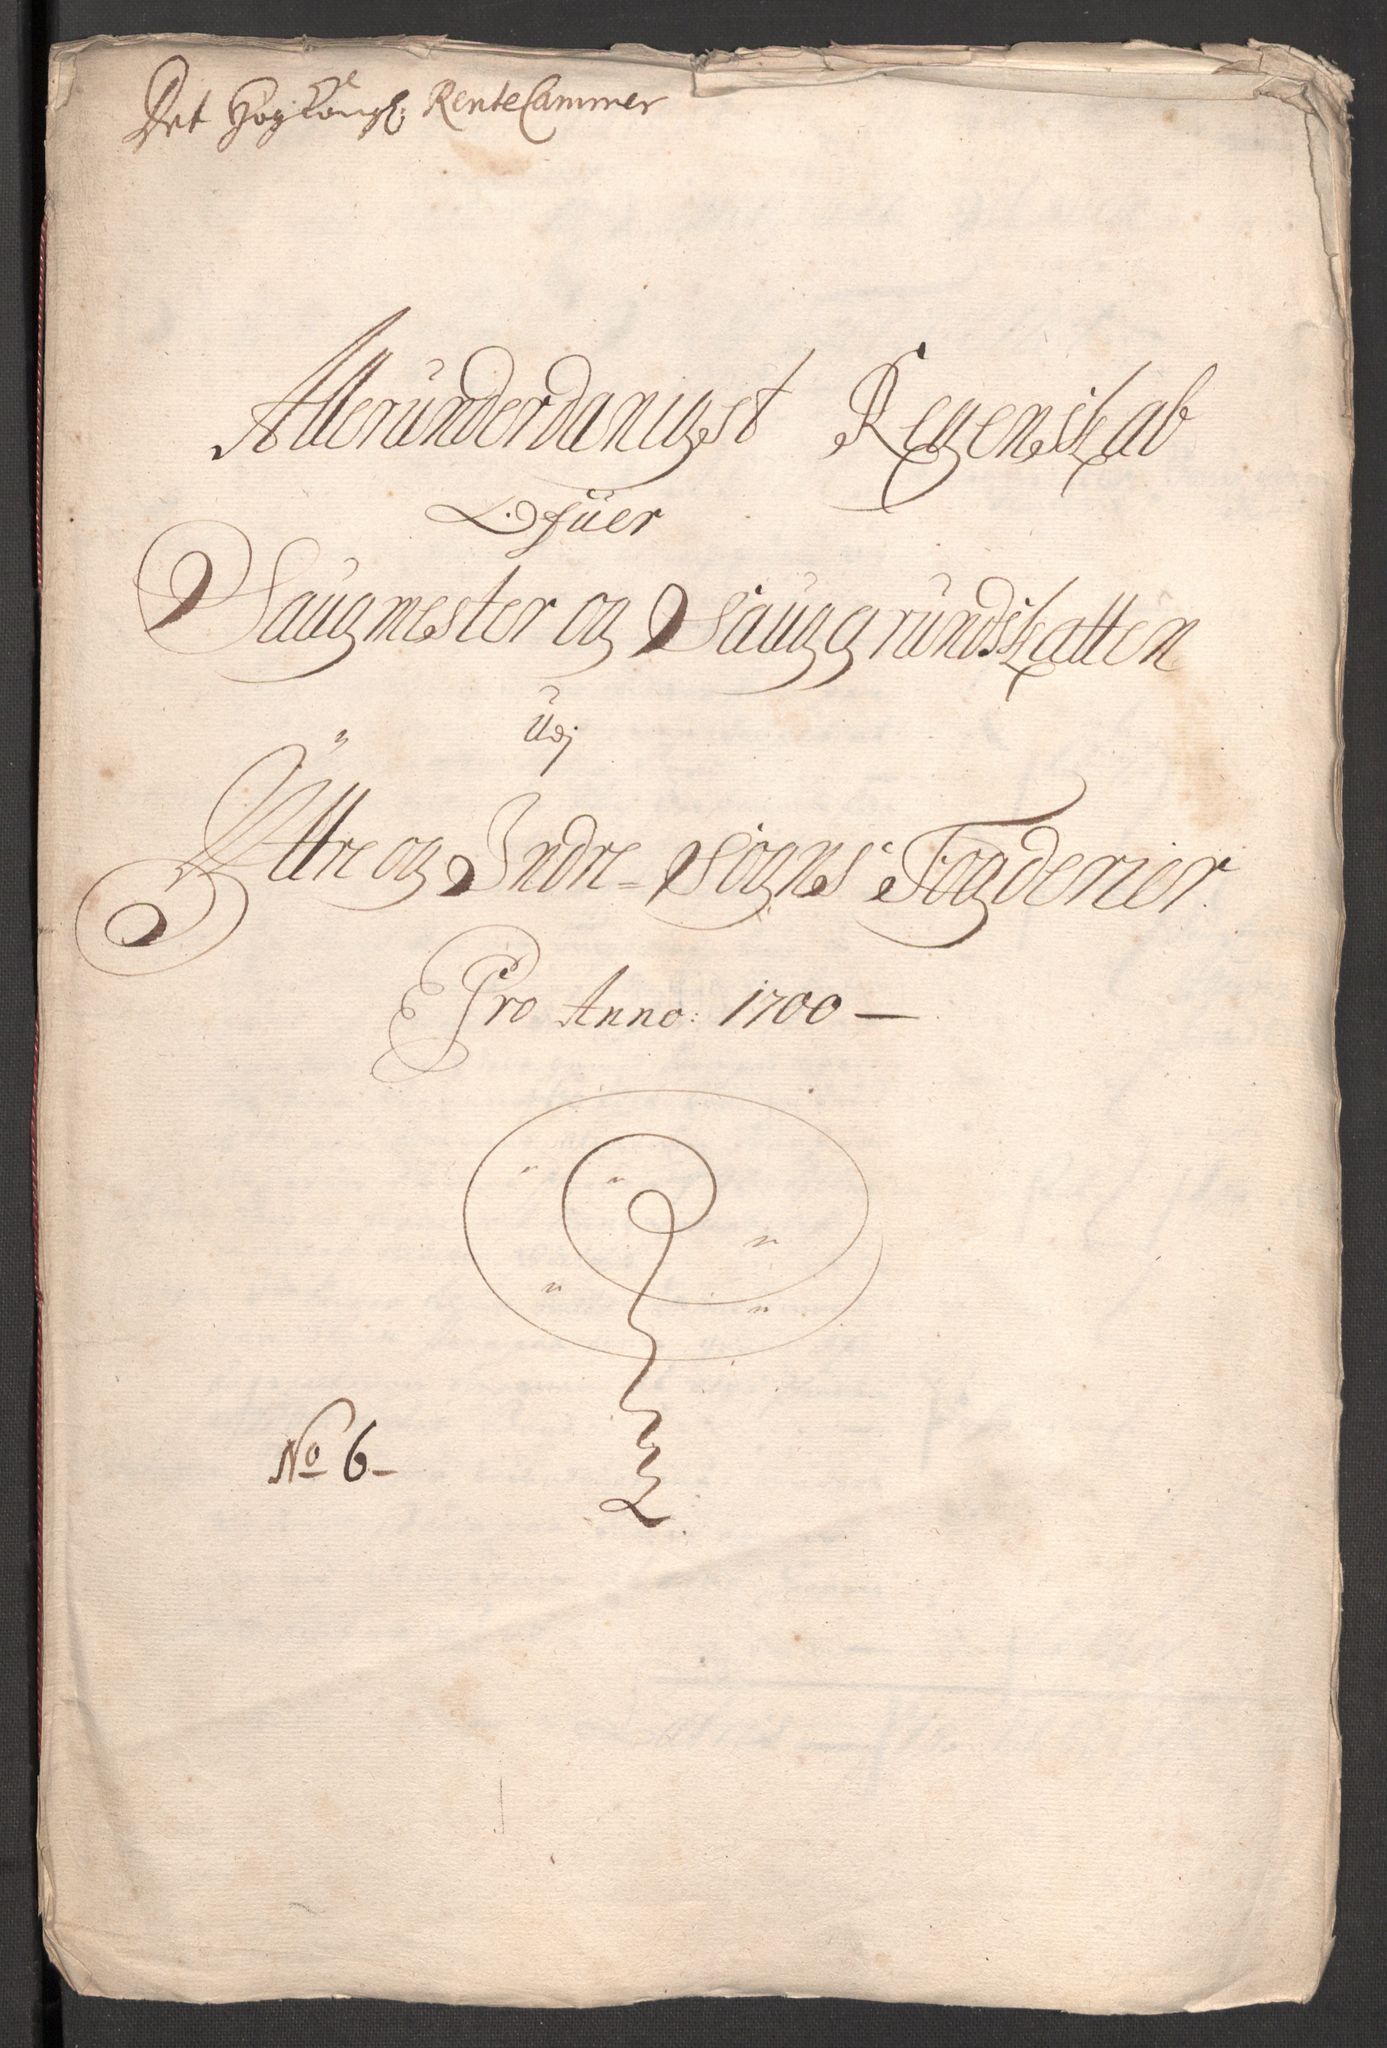 Det Høy Kongl: RenteCammer
Alleründerdanigst Regenskab
Ofüer
Saugmester og Sauggründskatten
Udj
Ÿttre og Indre=Sogns Fogderier.
Pro Anno: 1700 —
No 6–